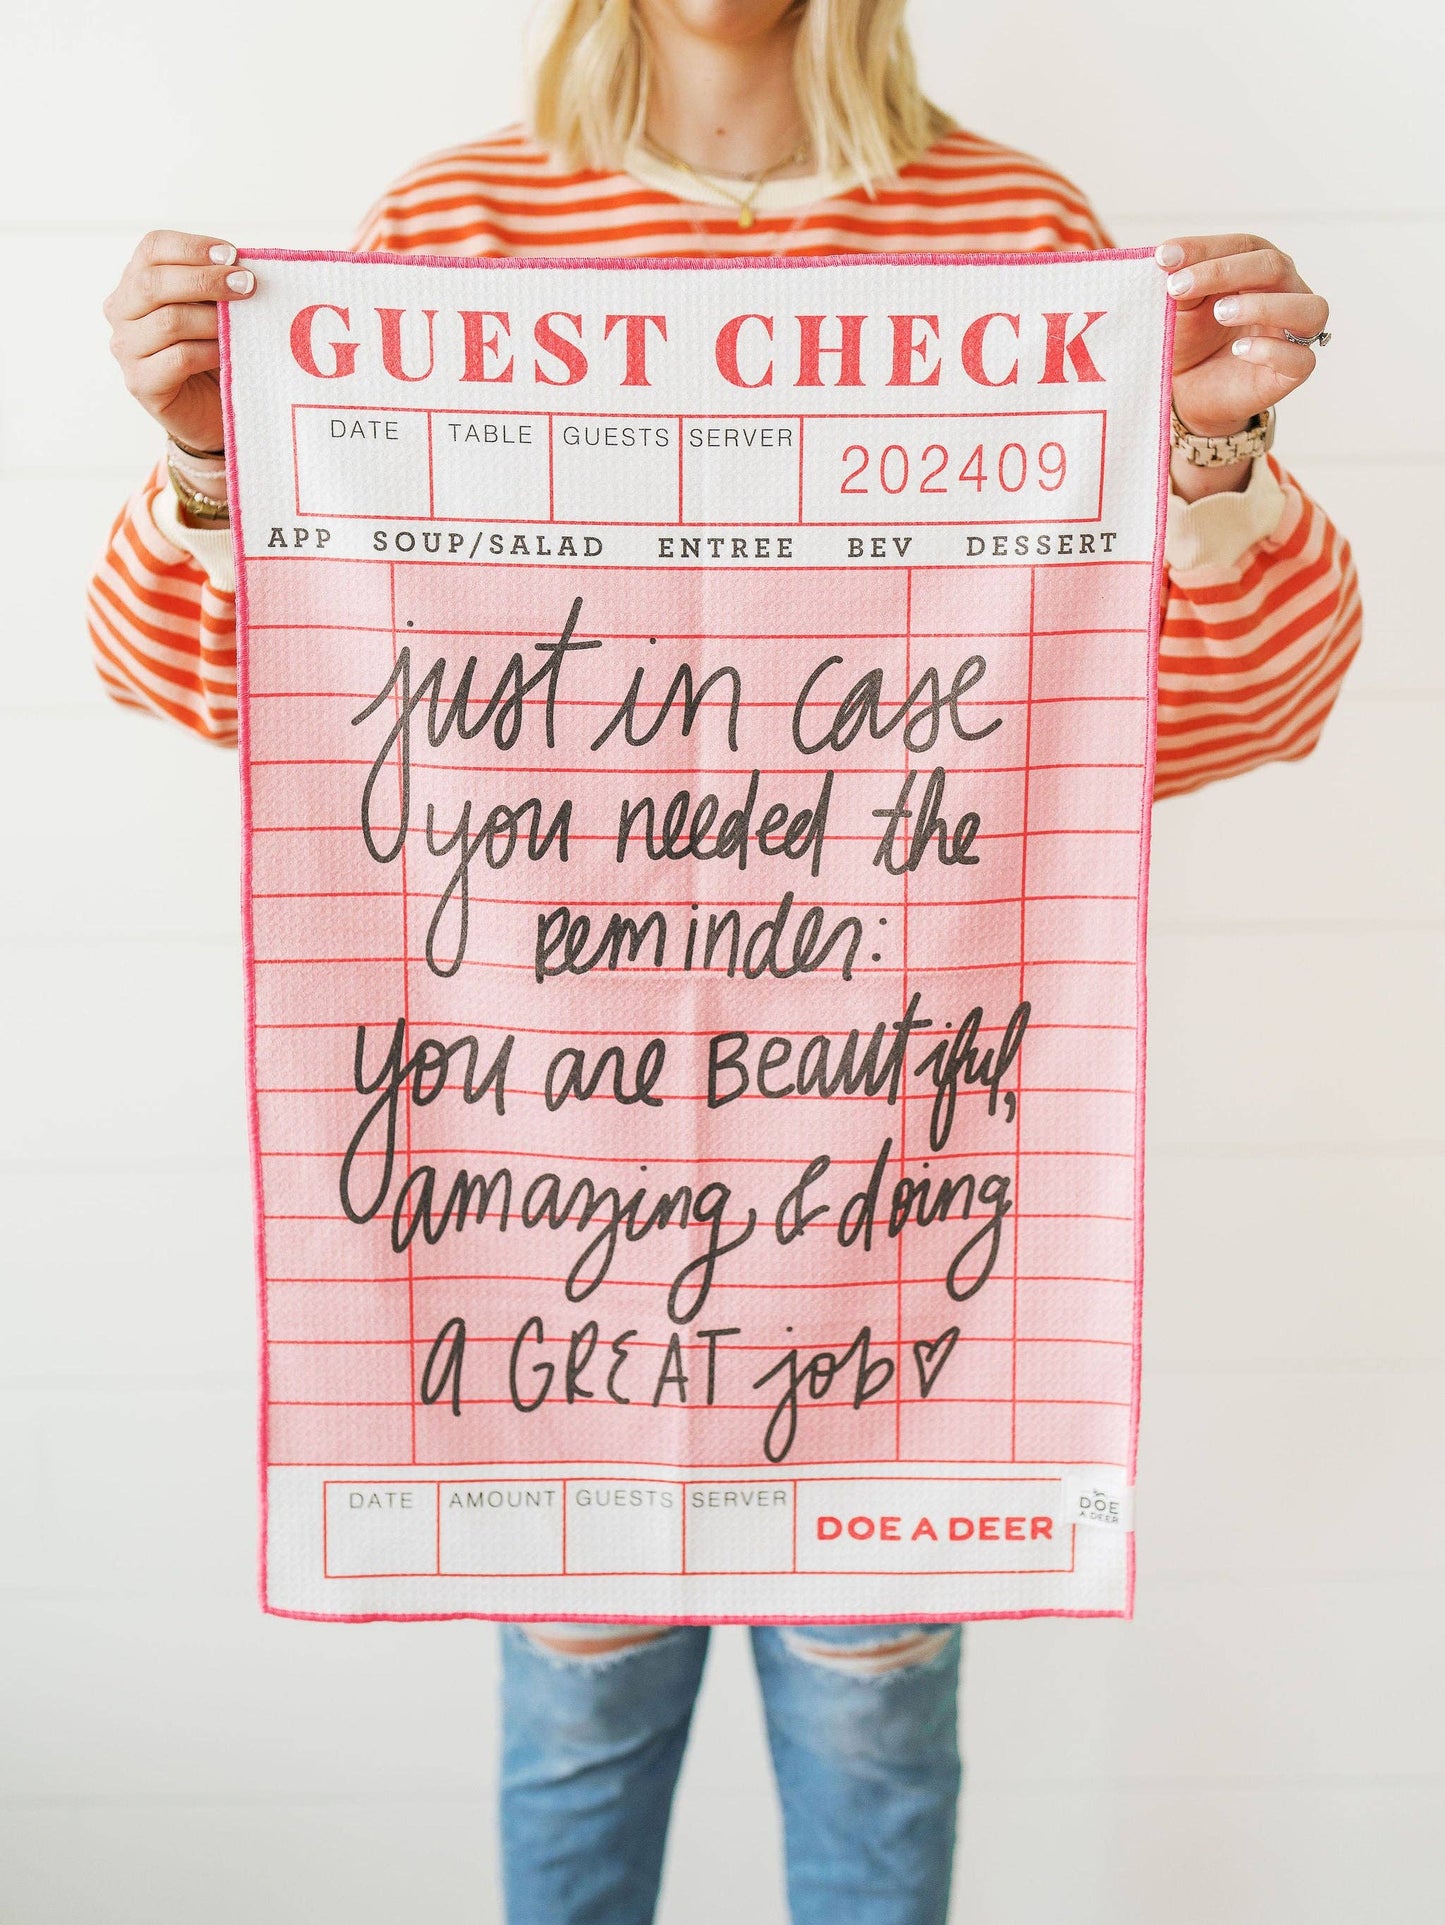 GUEST CHECK
DATE TABLE GUESTS SERVER 202409
APP SOUP/SALAD ENTREE BEV DESSERT
just in case
you needed the
reminder:
you are Beautiful,
amazing & doing
a GREAT job
DATE AMOUNT GUESTS SERVER DOE A DEER
DOE
A DEER